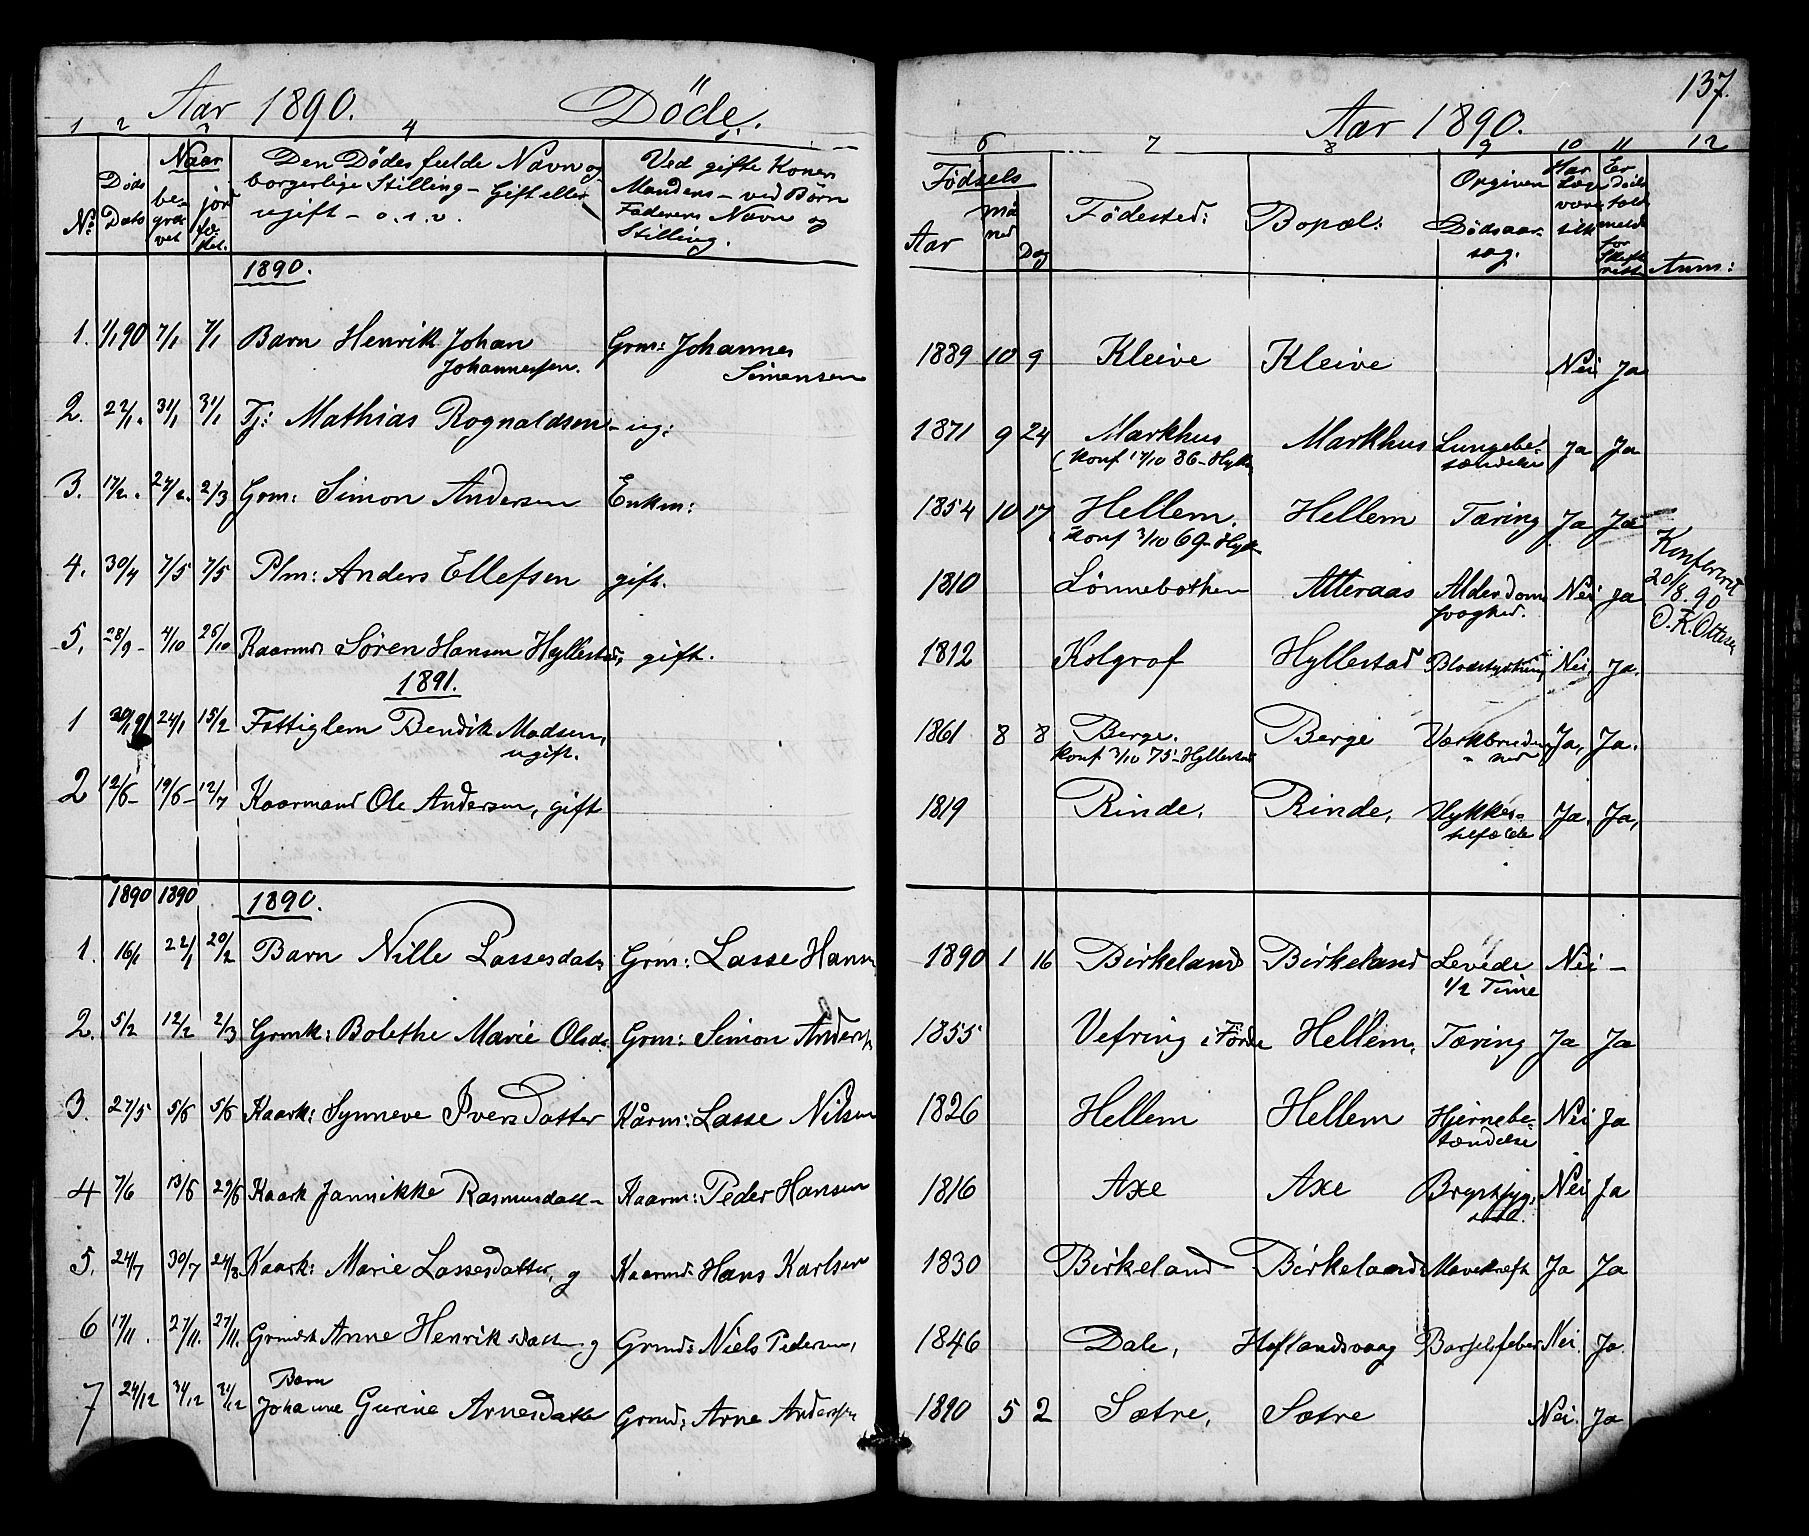 Aar 1890. Døde.
1 2 3 4 5.
No Døds Dato Naar be-gravet jord fæ-stet. Den Dødes fulde Navn og borgerlige Stilling - Gift eller ugift - o. s. v. Ved gifte Koner Mandens - ved Børn Faderens Navn og Stilling.
1890.
1. 1/1 90 7/1 7/1 Barn Henrik Johan Johannessen. Grm: Johannes Simensen
2. 22/1. 31/1 31/1 Tj: Mathias Rognaldsen - ug:
3. 17/2. 27/2. 2/3 Grm: Simon Andersen Enkm:
4. 30/4 7/5 7/5 Plm: Anders Ellefsen gift.
5. 28/9 - 4/10 26/10 Kaarmd Søren Hansen Hyllestad, gift.
1891.
1 20/1 91 24/1 15/2 Fattiglem Bendik Madsen, ugift.
2 12/6 - 19/6 - 12/7 Kaarmand Ole Andersen, gift
1890 1890 1890.
1. 16/1 22/1 20/2 Barn Nille Lassesdatt Grm: Lasse Hansen
2. 5/2 12/2 2/3 Grmk: Bolethe Marie Olsd. Grm: Simon Andersen
3. 27/5 5/6 5/6 Kaark: Synneve Iversdatter Kårm: Lasse Nilsen
4 7/6 13/6 29/6 Kaark Jannikke Rasmusdatt - Kaarm: Peder Hansen
5. 24/7 30/7 24/8 Kaark: Marie Lassesdatter, g Kaarmd: Hans Karlsen
6 17/11. 27/11. 27/11. Grmdsk Anne Henriksdatt. g Grmd: Niels Pedersen,
7 24/12 31/12 31/12 Barn Johanne Gurine Arnesdatter Grmd; Arne Anderssen
137.
Aar 1890.
6 7 8 9 10 11 12
Fødsels Aar må ned Dag Fødested: Bopæl: Opgiven Dødsaar-sag. Har Læge være tilk Er Døds fald meldt for Skifte rett Anm:
1889 10 9 Kleive Kleive Nei Ja
1871 9 24 Markhus Markhus Lungebe- Ja Ja
(Konf 17/10 86 - Hyll tændelse
1854 10 17 Hellem. Hellem Tæring Ja Ja
(Konf 3/10 69 - Hyll
1810 Lønnebotnen Atteraas Alderdoms svaghed. Nei Ja
Konfereret 20/8. 90 O. K. Ottesen
1812 Kolgrof Hyllestad Blodstyrtning Nei. Ja.
1861 8 8 Berge. Berge Værkbruden Ja, Ja.
Konf 3/10 75 - Hyllestad
1819 Rinde. Rinde. Ulykkes- tilfælde Ja. Ja,
1890 1 16 Birkeland Birkeland Levede 1/2 Time Nei -
1855 Vefring i Førde Hellem, Tæring Ja Ja
1826 Hellem Hellem Hjernebe- tændelse Nei Ja
1816 Axe Axe Brystsyg. Nei Ja
1830 Birkeland Birkeland Mavekræft Ja Ja
1846 Dale, Høflandsvaag Barselfeber Nei. Ja.
1890 5 2 Sætre, Sætre Nei. Ja